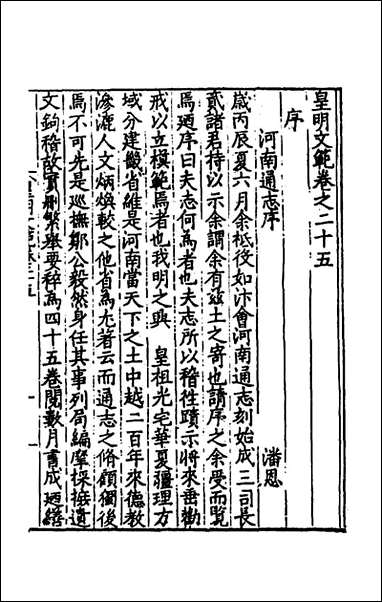 皇明文範卷之二十五
序
河南通志序 潘恩
歲丙辰夏六月余祗役如汴會河南通志刻始成三司長
貳諸君持以示余謂余有玆土之寄也請序之余受而覽
焉廼序曰夫志何為者也夫志所以稽徃蹟示將來垂勸
戒以立模範焉者也我明之興 皇祖光宅華夏疆理方
域分建藩省維是河南當天下之土中越二百年來德教
滲漉人文炳煥較之他省為尤著云而通志之脩顧獨後
焉不可先是巡撫鄒公毅然身任其事列局編摩採摭遺
文鉤稽故實刪繁舉要稡為四十五卷閱數月書成廼繕